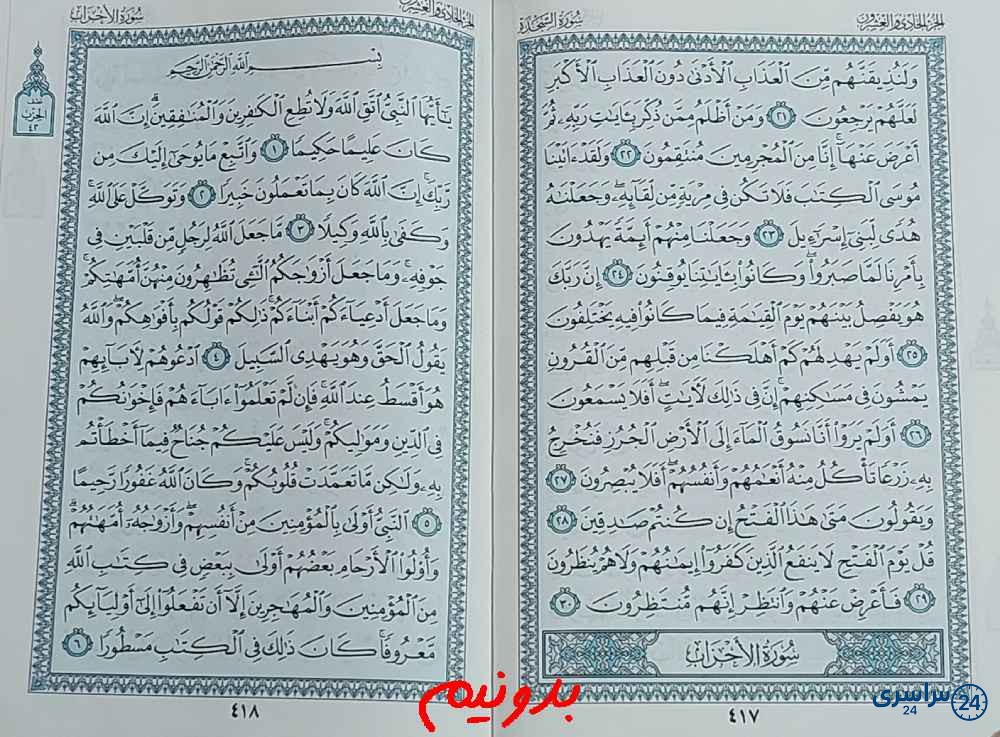 الجزء الحادي والعشرون
سُورَةُ السَّجْدَةِ
وَلَنُذِيقَنَّهُم مِّنَ ٱلْعَذَابِ ٱلْأَدْنَىٰ دُونَ ٱلْعَذَابِ ٱلْأَكْبَرِ
لَعَلَّهُمْ يَرْجِعُونَ ٢١ وَمَنْ أَظْلَمُ مِمَّن ذُكِّرَ بِـَٔايَٰتِ رَبِّهِۦ ثُمَّ
أَعْرَضَ عَنْهَآ إِنَّا مِنَ ٱلْمُجْرِمِينَ مُنتَقِمُونَ ٢٢ وَلَقَدْ ءَاتَيْنَا
مُوسَى ٱلْكِتَٰبَ فَلَا تَكُن فِى مِرْيَةٍ مِّن لِّقَآئِهِۦ وَجَعَلْنَٰهُ
هُدًى لِّبَنِىٓ إِسْرَٰٓءِيلَ ٢٣ وَجَعَلْنَا مِنْهُمْ أَئِمَّةً يَهْدُونَ
بِأَمْرِنَا لَمَّا صَبَرُوا۟ وَكَانُوا۟ بِـَٔايَٰتِنَا يُوقِنُونَ ٢٤ إِنَّ رَبَّكَ
هُوَ يَفْصِلُ بَيْنَهُمْ يَوْمَ ٱلْقِيَٰمَةِ فِيمَا كَانُوا۟ فِيهِ يَخْتَلِفُونَ
٢٥ أَوَلَمْ يَهْدِ لَهُمْ كَمْ أَهْلَكْنَا مِن قَبْلِهِم مِّنَ ٱلْقُرُونِ
يَمْشُونَ فِى مَسَٰكِنِهِمْ إِنَّ فِى ذَٰلِكَ لَـَٔايَٰتٍ أَفَلَا يَسْمَعُونَ
٢٦ أَوَلَمْ يَرَوْا۟ أَنَّا نَسُوقُ ٱلْمَآءَ إِلَى ٱلْأَرْضِ ٱلْجُرُزِ فَنُخْرِجُ
بِهِۦ زَرْعًا تَأْكُلُ مِنْهُ أَنْعَٰمُهُمْ وَأَنفُسُهُمْ أَفَلَا يُبْصِرُونَ ٢٧
وَيَقُولُونَ مَتَىٰ هَٰذَا ٱلْفَتْحُ إِن كُنتُمْ صَٰدِقِينَ ٢٨
قُلْ يَوْمَ ٱلْفَتْحِ لَا يَنفَعُ ٱلَّذِينَ كَفَرُوٓا۟ إِيمَٰنُهُمْ وَلَا هُمْ يُنظَرُونَ
٢٩ فَأَعْرِضْ عَنْهُمْ وَٱنتَظِرْ إِنَّهُم مُّنتَظِرُونَ ٣٠
سُورَةُ الأَحْزَابِ
٤١٧
الجزء الحادي والعشرون
سُورَةُ الأَحْزَابِ
نصف
الحزب
٤٢
بِسْمِ ٱللَّهِ ٱلرَّحْمَٰنِ ٱلرَّحِيمِ
يَٰٓأَيُّهَا ٱلنَّبِىُّ ٱتَّقِ ٱللَّهَ وَلَا تُطِعِ ٱلْكَٰفِرِينَ وَٱلْمُنَٰفِقِينَ إِنَّ ٱللَّهَ
كَانَ عَلِيمًا حَكِيمًا ١ وَٱتَّبِعْ مَا يُوحَىٰٓ إِلَيْكَ مِن
رَّبِّكَ إِنَّ ٱللَّهَ كَانَ بِمَا تَعْمَلُونَ خَبِيرًا ٢ وَتَوَكَّلْ عَلَى ٱللَّهِ
وَكَفَىٰ بِٱللَّهِ وَكِيلًا ٣ مَّا جَعَلَ ٱللَّهُ لِرَجُلٍ مِّن قَلْبَيْنِ فِى
جَوْفِهِۦ وَمَا جَعَلَ أَزْوَٰجَكُمُ ٱلَّٰٓـِٔى تُظَٰهِرُونَ مِنْهُنَّ أُمَّهَٰتِكُمْ
وَمَا جَعَلَ أَدْعِيَآءَكُمْ أَبْنَآءَكُمْ ذَٰلِكُمْ قَوْلُكُم بِأَفْوَٰهِكُمْ وَٱللَّهُ
يَقُولُ ٱلْحَقَّ وَهُوَ يَهْدِى ٱلسَّبِيلَ ٤ ٱدْعُوهُمْ لِـَٔابَآئِهِمْ
هُوَ أَقْسَطُ عِندَ ٱللَّهِ فَإِن لَّمْ تَعْلَمُوٓا۟ ءَابَآءَهُمْ فَإِخْوَٰنُكُمْ
فِى ٱلدِّينِ وَمَوَٰلِيكُمْ وَلَيْسَ عَلَيْكُمْ جُنَاحٌ فِيمَآ أَخْطَأْتُم
بِهِۦ وَلَٰكِن مَّا تَعَمَّدَتْ قُلُوبُكُمْ وَكَانَ ٱللَّهُ غَفُورًا رَّحِيمًا
٥ ٱلنَّبِىُّ أَوْلَىٰ بِٱلْمُؤْمِنِينَ مِنْ أَنفُسِهِمْ وَأَزْوَٰجُهُۥٓ أُمَّهَٰتُهُمْ
وَأُو۟لُوا۟ ٱلْأَرْحَامِ بَعْضُهُمْ أَوْلَىٰ بِبَعْضٍ فِى كِتَٰبِ ٱللَّهِ
مِنَ ٱلْمُؤْمِنِينَ وَٱلْمُهَٰجِرِينَ إِلَّآ أَن تَفْعَلُوٓا۟ إِلَىٰٓ أَوْلِيَآئِكُم
مَّعْرُوفًا كَانَ ذَٰلِكَ فِى ٱلْكِتَٰبِ مَسْطُورًا ٦
٤١٨
بدونیم
سراسری 24
24